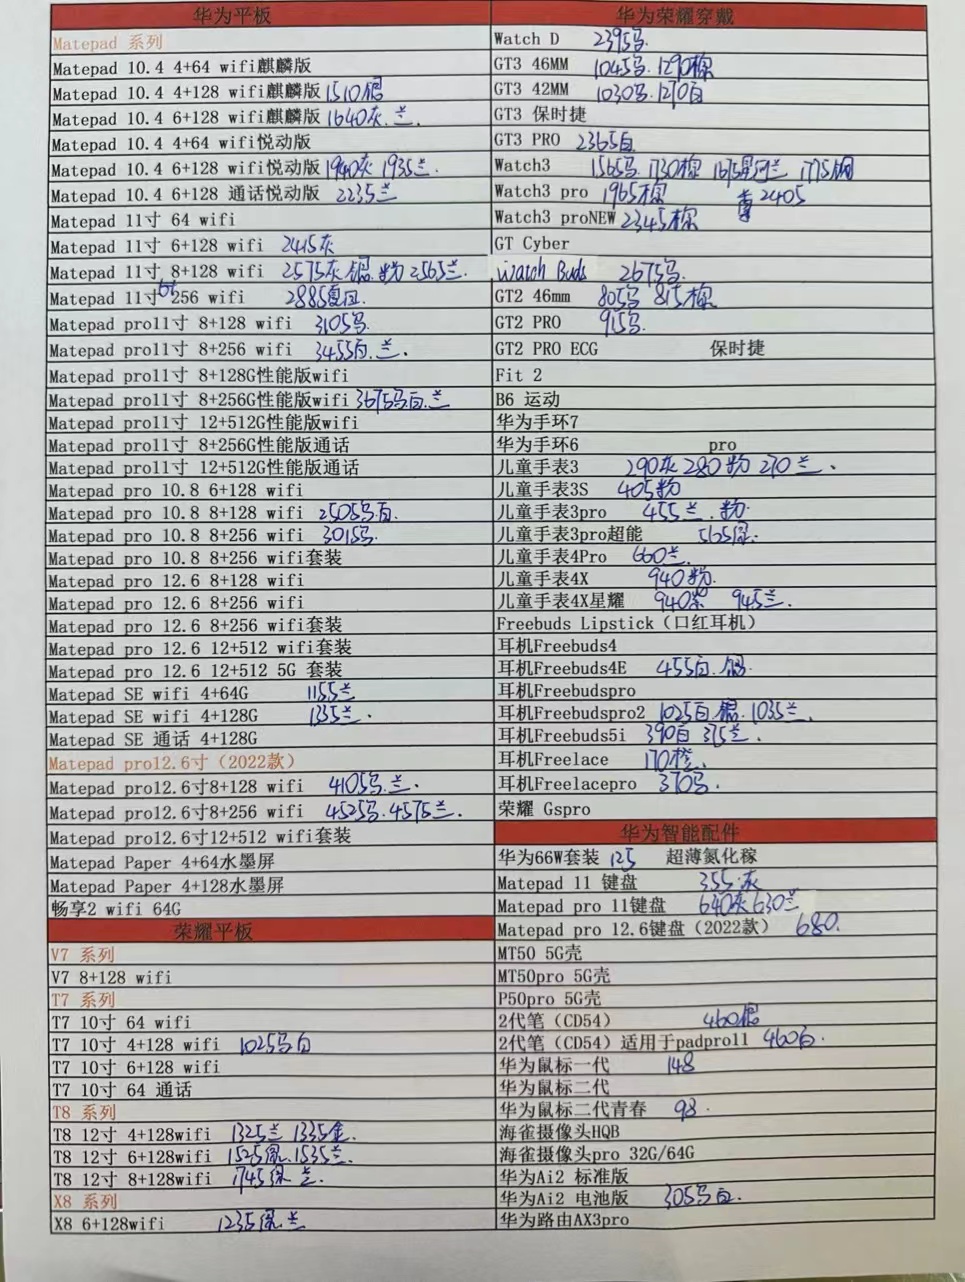 华为平板
Matepad 系列
Matepad 10.4 4+64 wifi麒麟版
Matepad 10.4 4+128 wifi麒麟版 1510银
Matepad 10.4 6+128 wifi麒麟版 1640灰.兰.
Matepad 10.4 4+64 wifi悦动版
Matepad 10.4 6+128 wifi悦动版 1940灰 1935兰.
Matepad 10.4 6+128 通话悦动版 2235兰
Matepad 11寸 64 wifi
Matepad 11寸 6+128 wifi 2415灰
Matepad 11寸 8+128 wifi 2575灰.银.粉 2565兰.
Matepad 11寸 256 wifi 2885
Matepad pro11寸 8+128 wifi 3105马.
Matepad pro11寸 8+256 wifi 3455白.兰.
Matepad pro11寸 8+128G性能版wifi
Matepad pro11寸 8+256G性能版wifi 3675马白.兰
Matepad pro11寸 12+512G性能版wifi
Matepad pro11寸 8+256G性能版通话
Matepad pro11寸 12+512G性能版通话
Matepad pro 10.8 6+128 wifi
Matepad pro 10.8 8+128 wifi 2505马.白.
Matepad pro 10.8 8+256 wifi 3015马.
Matepad pro 10.8 8+256 wifi套装
Matepad pro 12.6 8+128 wifi
Matepad pro 12.6 8+256 wifi
Matepad pro 12.6 8+256 wifi套装
Matepad pro 12.6 12+512 wifi套装
Matepad pro 12.6 12+512 5G 套装
Matepad SE wifi 4+64G 1155兰
Matepad SE wifi 4+128G 1335兰.
Matepad SE 通话 4+128G
Matepad pro12.6寸（2022款）
Matepad pro12.6寸8+128 wifi 4105马.兰.
Matepad pro12.6寸8+256 wifi 4525马.4575兰.
Matepad pro12.6寸12+512 wifi套装
Matepad Paper 4+64水墨屏
Matepad Paper 4+128水墨屏
畅享2 wifi 64G
荣耀平板
V7 系列
V7 8+128 wifi
T7 系列
T7 10寸 64 wifi
T7 10寸 4+128 wifi 1025马白
T7 10寸 6+128 wifi
T7 10寸 64 通话
T8 系列
T8 12寸 4+128wifi 1325兰 1335金.
T8 12寸 6+128wifi 1525绿.1535兰.
T8 12寸 8+128wifi 1745绿 兰.
X8 系列
X8 6+128wifi 1235绿.兰
华为荣耀穿戴
Watch D 2395马.
GT3 46MM 1045马.1290棕
GT3 42MM 1030马.1270白
GT3 保时捷
GT3 PRO 2365白
Watch3 1565马 1730棕 1675星河兰 1775钢
Watch3 pro 1965棕 2405
Watch3 proNEW 2345棕
GT Cyber
Watch Buds 2675马.
GT2 46mm 805马 815棕
GT2 PRO 915马.
GT2 PRO ECG 保时捷
Fit 2
B6 运动
华为手环7
华为手环6 pro
儿童手表3 290灰 280粉 270兰.
儿童手表3S 405粉
儿童手表3pro 455兰.粉
儿童手表3pro超能 565绿.
儿童手表4Pro 660兰.
儿童手表4X 940粉.
儿童手表4X星耀 940紫 945兰.
Freebuds Lipstick（口红耳机）
耳机Freebuds4
耳机Freebuds4E 455白.银.
耳机Freebudspro
耳机Freebudspro2 1025白.银.1035兰.
耳机Freebuds5i 390白 375兰.
耳机Freelace 170橙.
耳机Freelacepro 370马.
荣耀 Gspro
华为智能配件
华为66W套装 125 超薄氮化稼
Matepad 11 键盘 355.灰
Matepad pro 11键盘 640灰 630兰
Matepad pro 12.6键盘（2022款） 680.
MT50 5G壳
MT50pro 5G壳
P50pro 5G壳
2代笔（CD54） 460银
2代笔（CD54）适用于padpro11 460白.
华为鼠标一代 148
华为鼠标二代
华为鼠标二代青春 98.
海雀摄像头HQB
海雀摄像头pro 32G/64G
华为Ai2 标准版
华为Ai2 电池版 305马白.
华为路由AX3pro